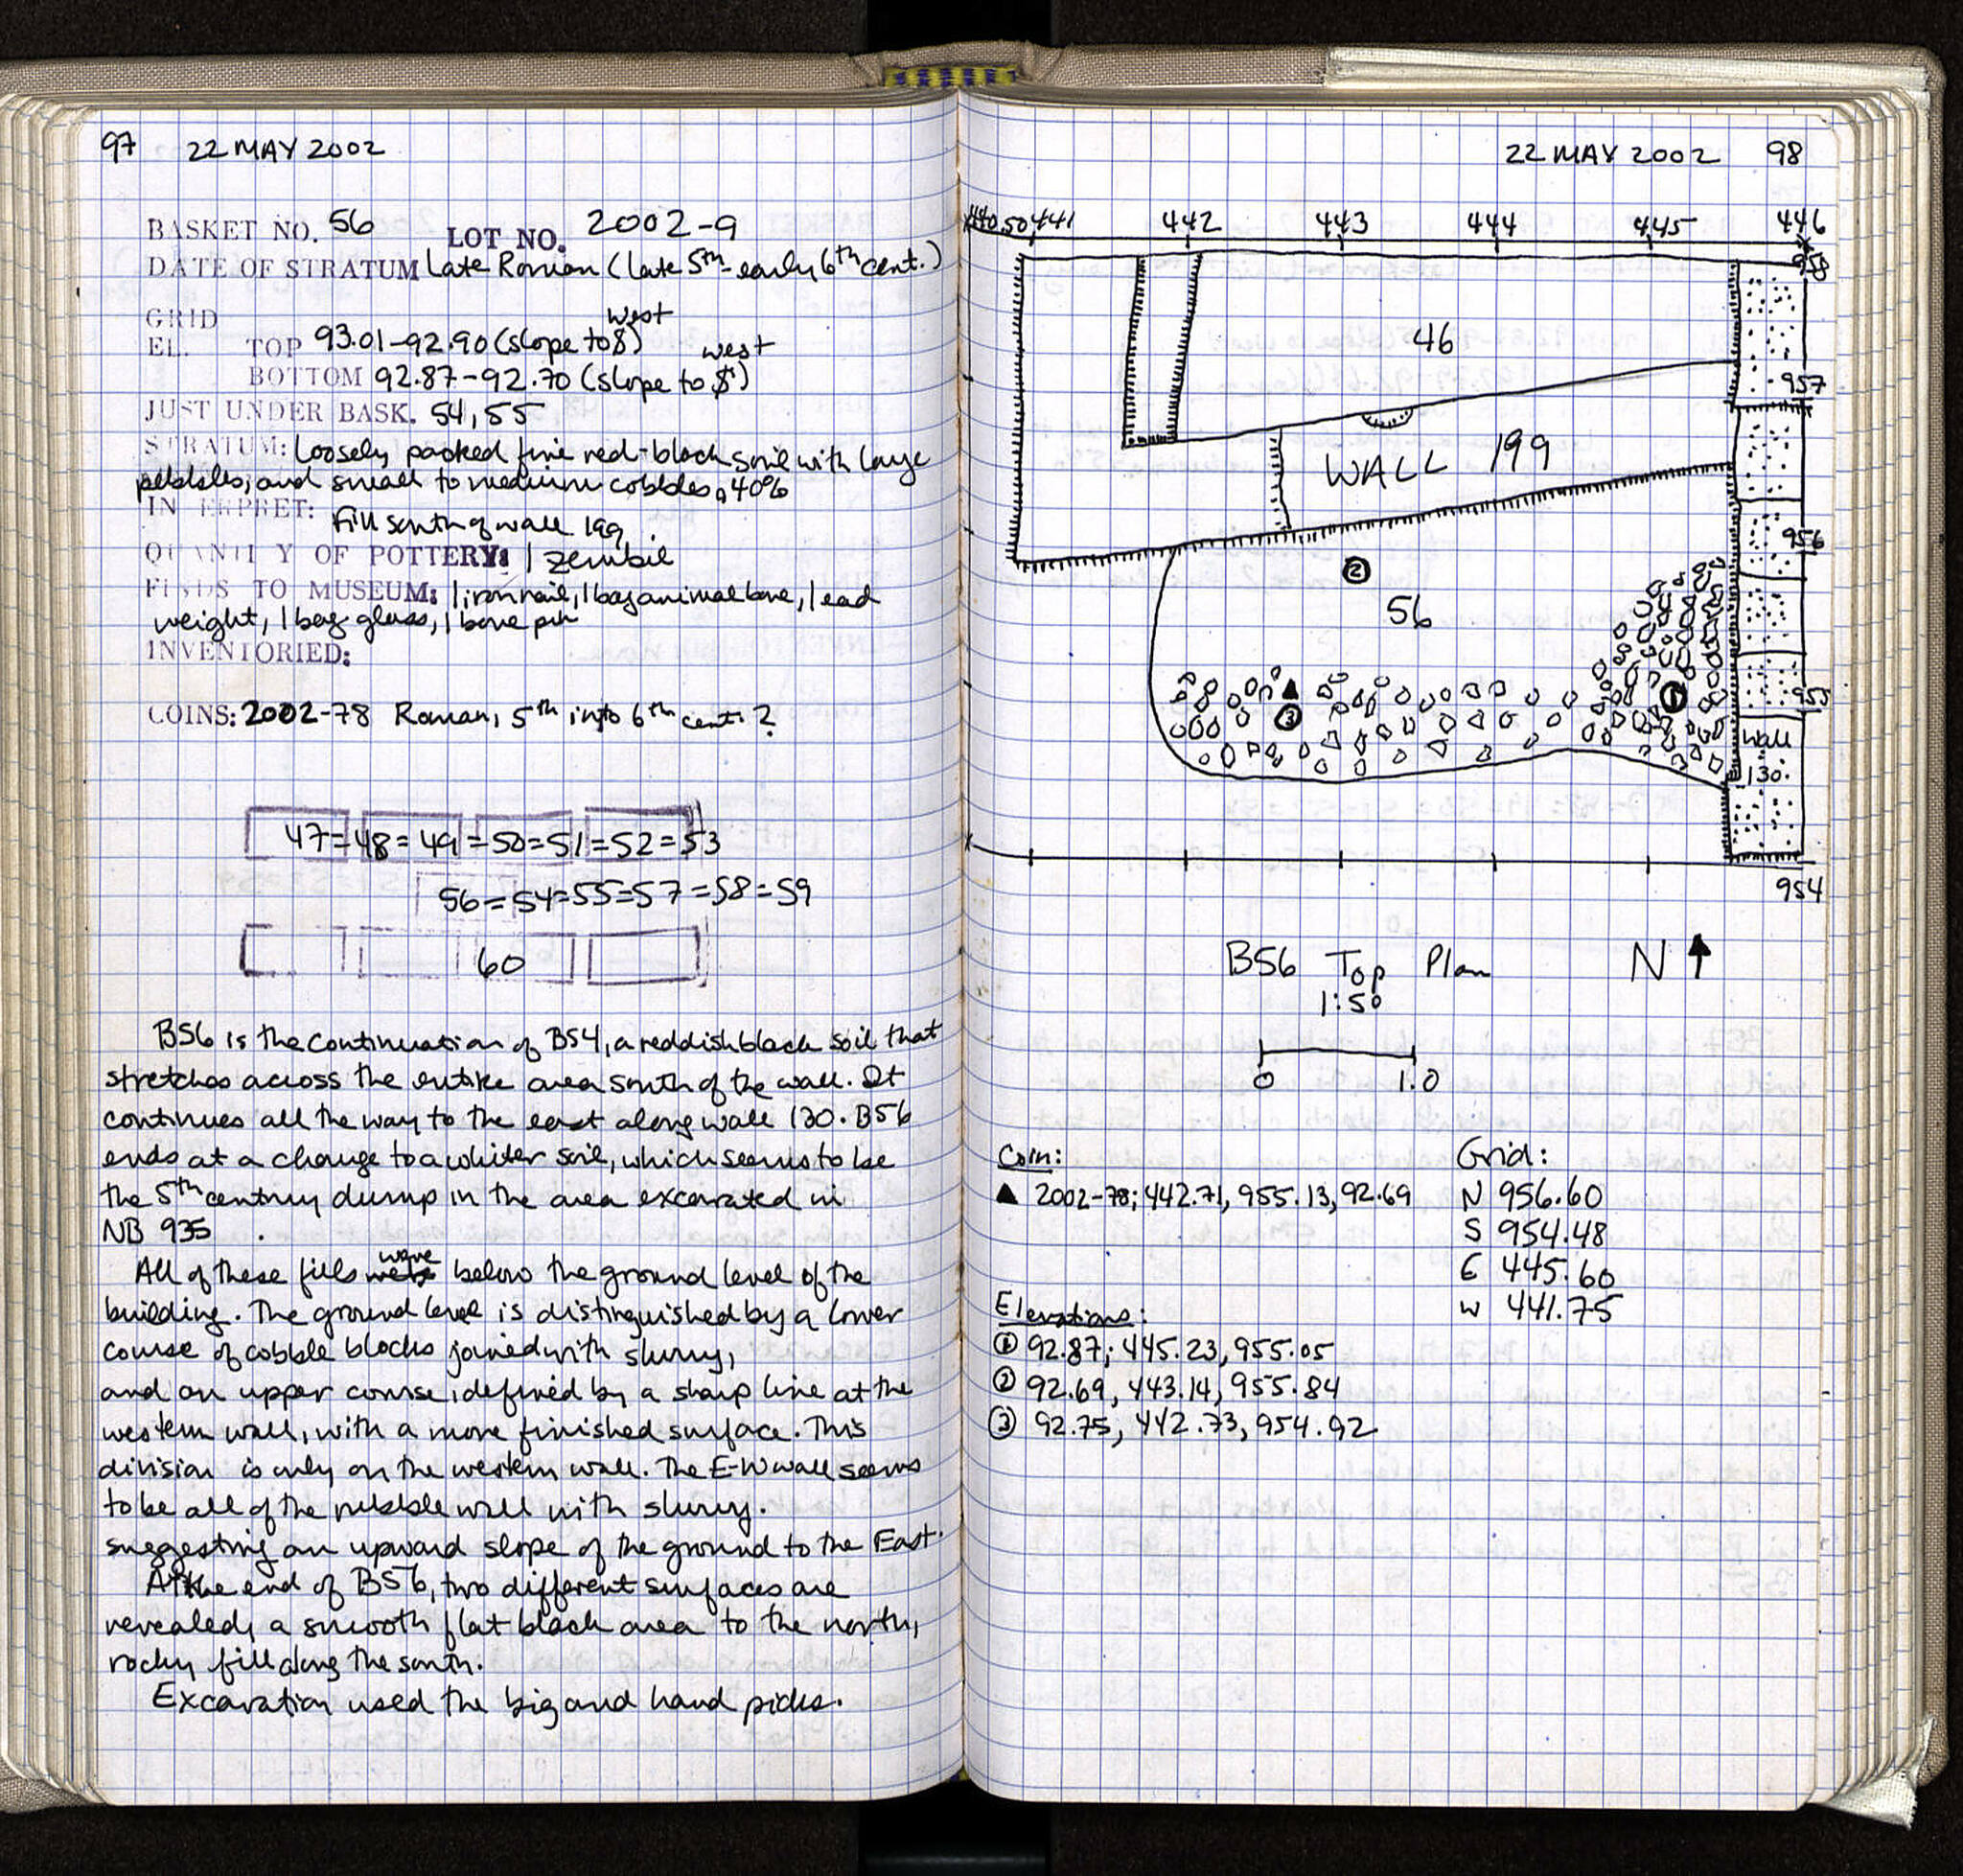 97 22 MAY 2002
BASKET NO. 56 LOT NO. 2002-9
DATE OF STRATUM Late Roman (late 5th-early 6th cent.)
GRID
west
EL. TOP 93.01-92.90 (slope to S)
west
BOTTOM 92.87-92.70 (slope to S)
JUST UNDER BASK. 54, 55
STRATUM: Loosely packed fine red-black soil with large
pebbles, and small to medium cobbles, 40%
INTERPRET: Fill south of wall 199
QUANTITY OF POTTERY: 1 zembil
FINDS TO MUSEUM: 1 iron nail, 1 bag animal bone, 1 lead
weight, 1 bag glass, 1 bone pin
INVENTORIED:
COINS: 2002-78 Roman, 5th into 6th cent. ?
47=48=49=50=51=52=53
56=54=55=57=58=59
60
B56 is the continuation of B54, a reddish black soil that
stretches across the entire area south of the wall. It
continues all the way to the east along wall 130. B56
ends at a change to a whiter soil, which seems to be
the 5th century dump in the area excavated in
NB 935
were
All of these fills were below the ground level of the
building. The ground level is distinguished by a lower
course of cobble blocks joined with slurry,
and an upper course, defined by a sharp line at the
western wall, with a more finished surface. This
division is only on the western wall. The E-W wall seems
to be all of the rubble wall with slurry.
suggesting an upward slope of the ground to the East.
At the end of B56, two different surfaces are
revealed, a smooth flat black area to the north,
rocky fill along the south.
Excavation used the big and hand picks.
22 MAY 2002 98
440.50 441 442 443 444 445 446
958
46
957
WALL 199
956
2
56
1
955
3
wall
130
954
B56 Top Plan N
1:50
0 1.0
Coin:
▲ 2002-78; 442.71, 955.13, 92.69
Grid:
N 956.60
S 954.48
E 445.60
W 441.75
Elevations:
① 92.87; 445.23, 955.05
② 92.69, 443.14, 955.84
③ 92.75, 442.73, 954.92